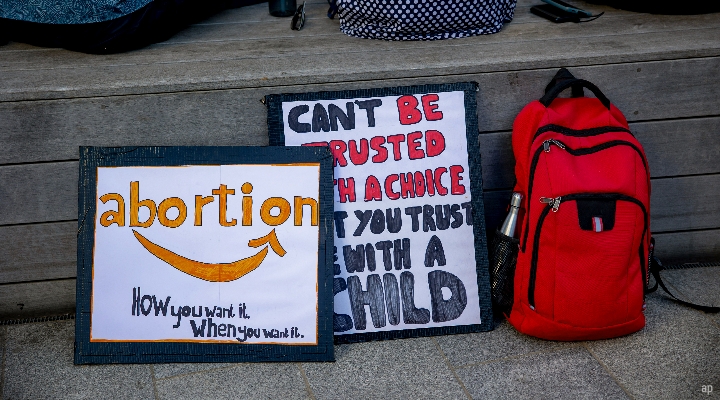 abortion
How you want it.
When you want it.
CAN'T BE
TRUSTED
A CHOICE
YOU TRUST
WITH A
CHILD
ap